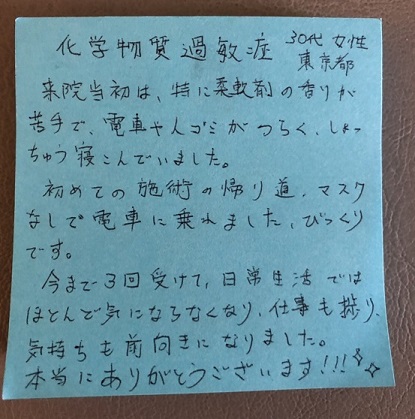 化学物質過敏症 30代 女性
東京都
来院当初は、特に柔軟剤の香りが
苦手で、電車や人ゴミがつらく、しょっ
ちゅう寝こんでいました。
初めての施術の帰り道、マスク
なしで電車に乗れました、びっくり
です。
今まで3回受けて、日常生活では
ほとんど気にならなくなり、仕事も捗り、
気持ちも前向きになりました。
本当にありがとうございます!!!